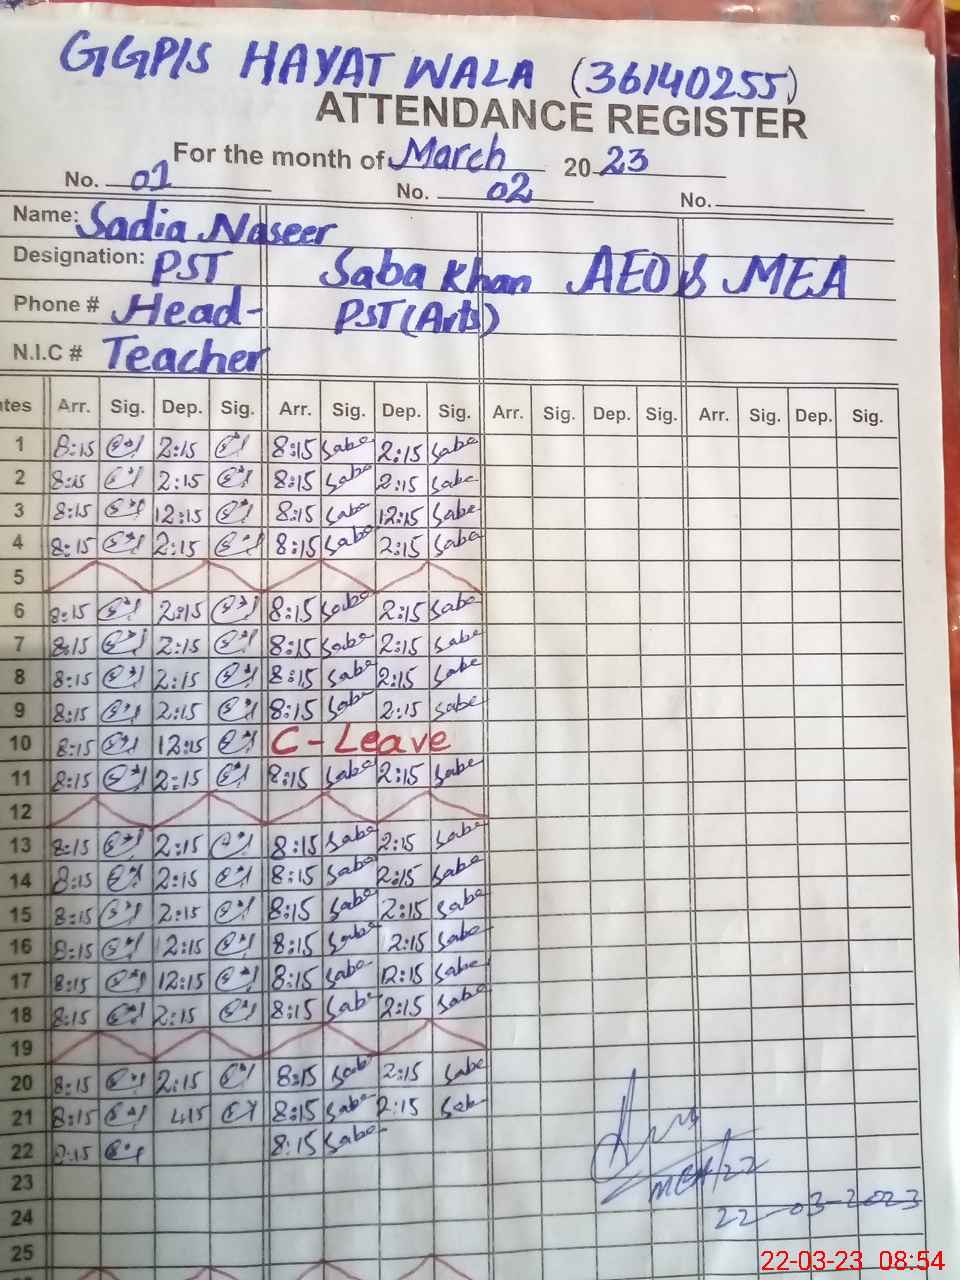 GGP/S HAYAT WALA (36140255)
ATTENDANCE REGISTER
For the month of March 2023
No. 01 No. 02 No.
Name: Sadia Naseer
Designation: PST Saba Khan AEO & MEA
Phone # Head- PST (Arts)
N.I.C # Teacher
tes Arr. Sig. Dep. Sig. Arr. Sig. Dep. Sig. Arr. Sig. Dep. Sig. Arr. Sig. Dep. Sig.
1 8:15 2:15 8:15 Saba 2:15 Saba
2 8:15 2:15 8:15 Saba 2:15 Saba
3 8:15 12:15 8:15 Saba 12:15 Saba
4 8:15 2:15 8:15 Saba 2:15 Saba
5
6 8:15 2:15 8:15 Saba 2:15 Saba
7 8:15 2:15 8:15 Saba 2:15 Saba
8 8:15 2:15 8:15 Saba 2:15 Saba
9 8:15 2:15 8:15 Saba 2:15 Saba
10 8:15 12:15 C-Leave
11 8:15 2:15 8:15 Saba 2:15 Saba
12
13 8:15 2:15 8:15 Saba 2:15 Saba
14 8:15 2:15 8:15 Saba 2:15 Saba
15 8:15 2:15 8:15 Saba 2:15 Saba
16 8:15 2:15 8:15 Saba 2:15 Saba
17 8:15 12:15 8:15 Saba 12:15 Saba
18 8:15 2:15 8:15 Saba 2:15 Saba
19
20 8:15 2:15 8:15 Saba 2:15 Saba
21 8:15 8:15 Saba 2:15 Sab
22 8:15 Saba
23
MEA/22
24 22-03-2023
25
22-03-23 08:54